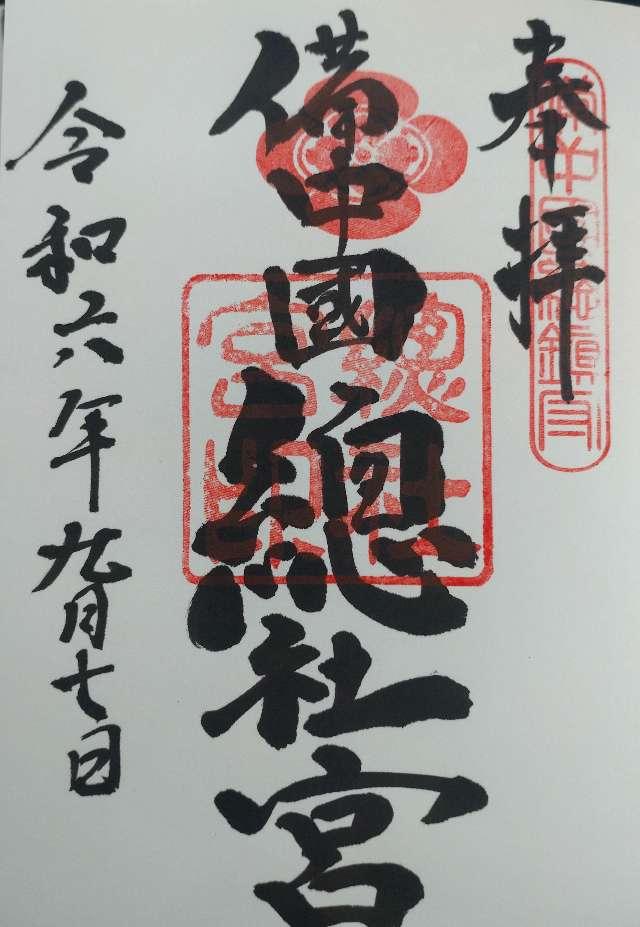 奉拝
備中國総鎮守
備中國總社宮
總社宮印
令和六年九月七日